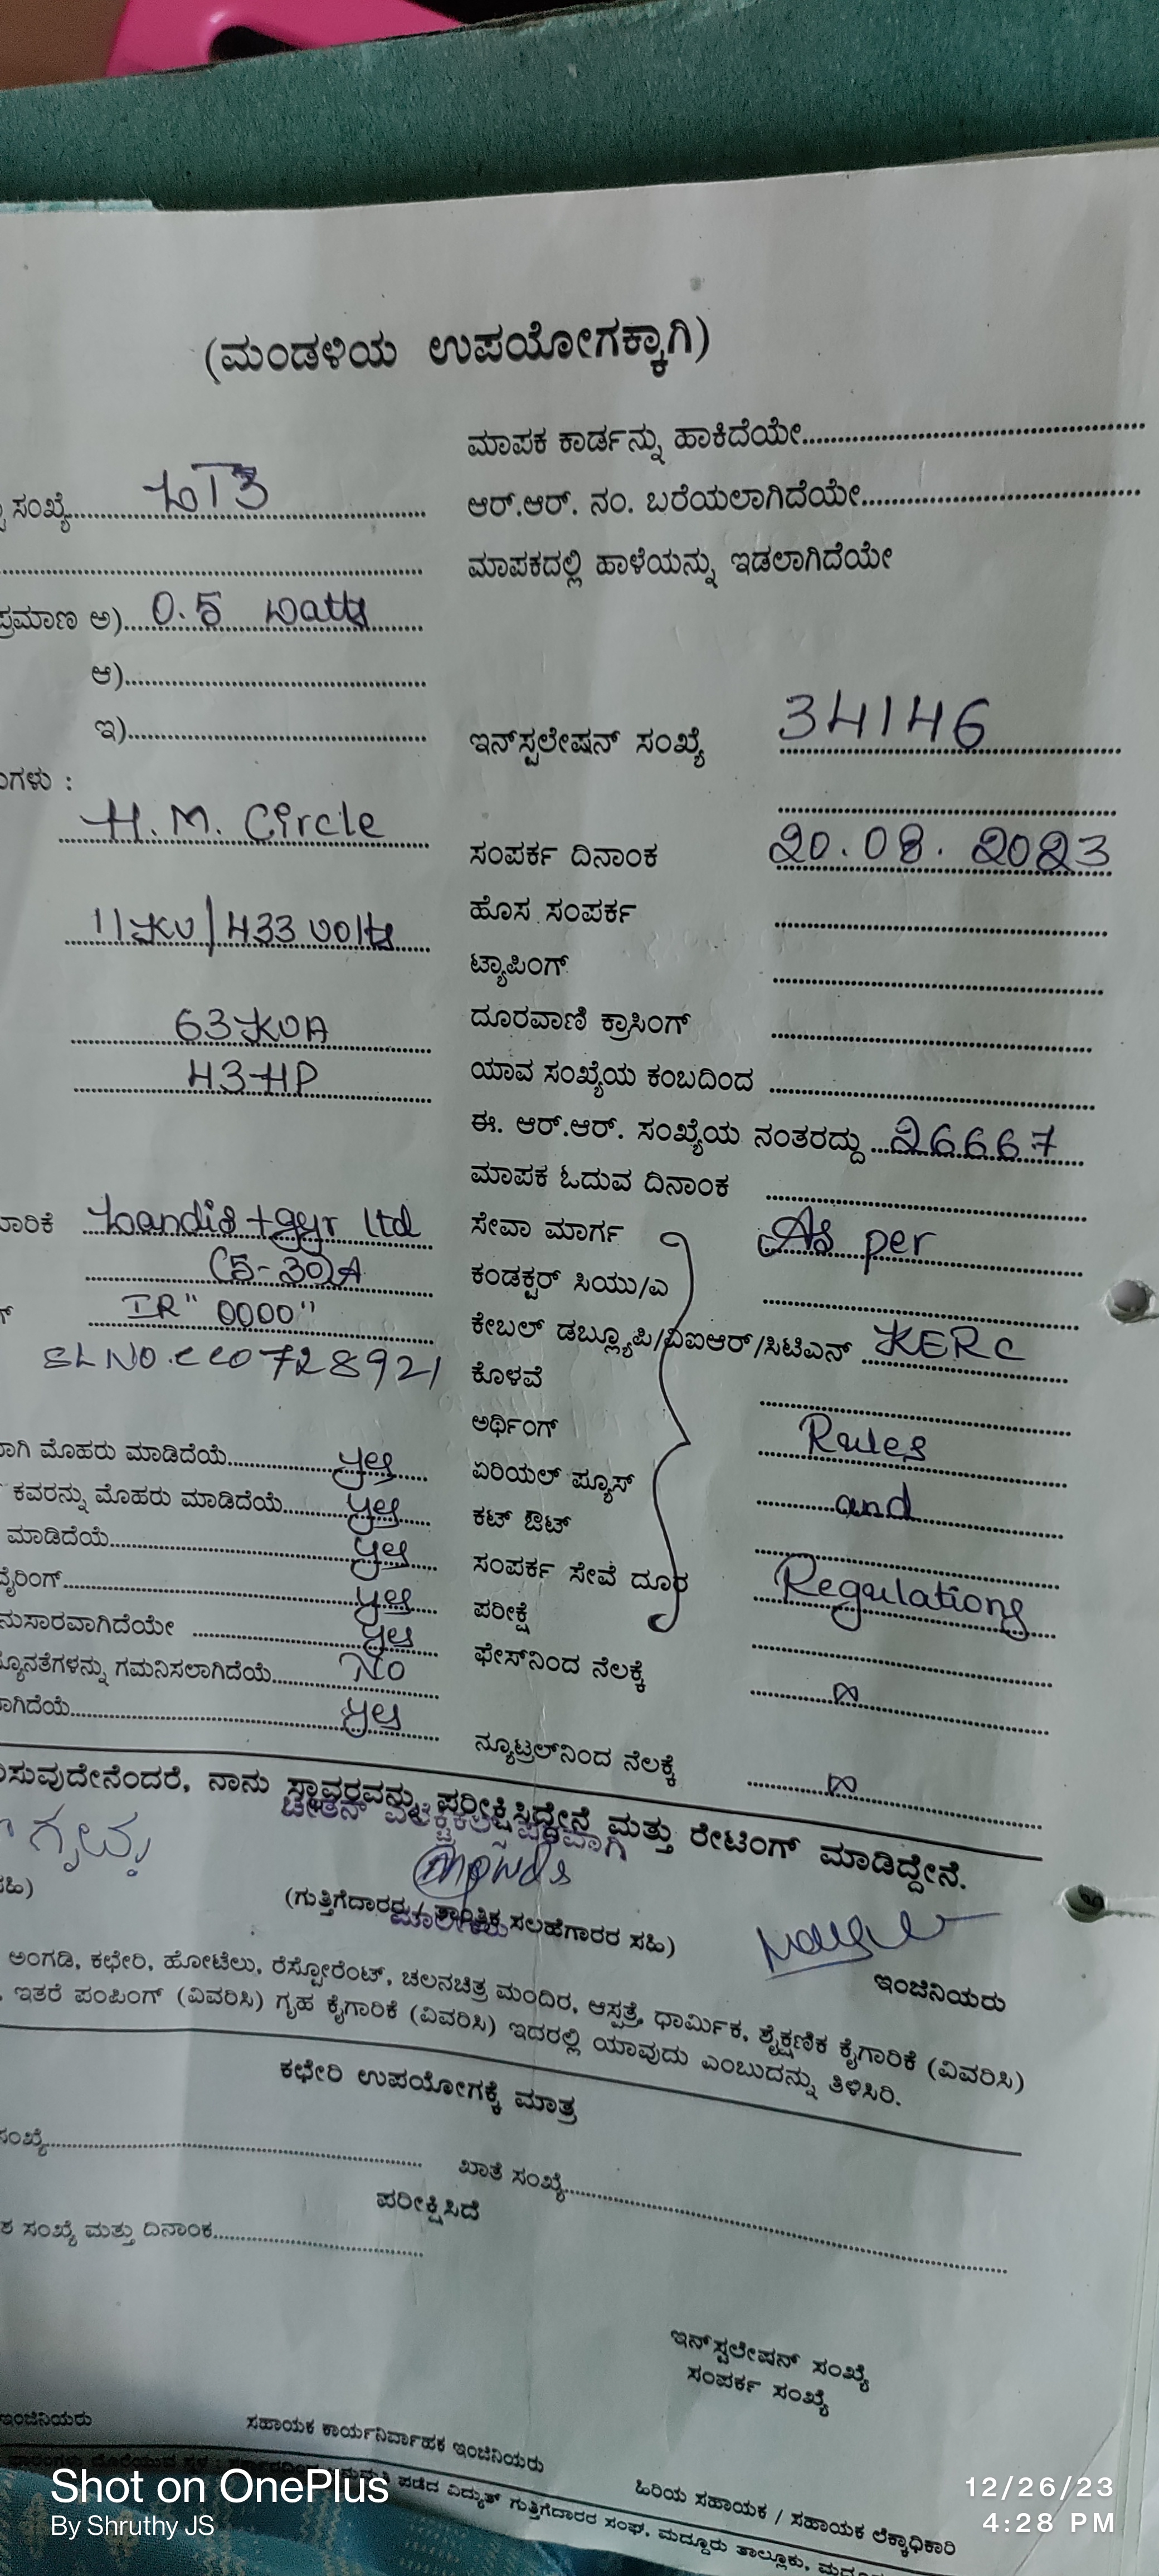 (ಮಂಡಳಿಯ ಉಪಯೋಗಕ್ಕಾಗಿ)
ಮಾಪಕ ಕಾರ್ಡನ್ನು ಹಾಕಿದೆಯೇ
ಸಂಖ್ಯೆ LT3
ಆರ್.ಆರ್. ನಂ. ಬರೆಯಲಾಗಿದೆಯೇ
ಮಾಪಕದಲ್ಲಿ ಹಾಳೆಯನ್ನು ಇಡಲಾಗಿದೆಯೇ
ಪ್ರಮಾಣ ಅ) 0.5 watts
ಆ)
ಇ)
ಇನ್‌ಸ್ಟಲೇಷನ್ ಸಂಖ್ಯೆ 34146
ಗಳು :
H.M. Circle
ಸಂಪರ್ಕ ದಿನಾಂಕ 20.08.2023
ಹೊಸ ಸಂಪರ್ಕ
11KV/433 Volts
ಟ್ಯಾಪಿಂಗ್
63KVA
ದೂರವಾಣಿ ಕ್ರಾಸಿಂಗ್
43HP
ಯಾವ ಸಂಖ್ಯೆಯ ಕಂಬದಿಂದ
ಈ. ಆರ್.ಆರ್. ಸಂಖ್ಯೆಯ ನಂತರದ್ದು 26667
ಮಾಪಕ ಓದುವ ದಿನಾಂಕ
Landis+gyr ltd
ಸೇವಾ ಮಾರ್ಗ As per
(5-30)A
ಕಂಡಕ್ಟರ್ ಸಿಯು/ಎ
IR "0000"
ಕೇಬಲ್ ಡಬ್ಲ್ಯೂಪಿ/ವಿಐಆರ್/ಸಿಟಿಎನ್ KERC
SL NO.CC0728921
ಕೊಳವೆ
ಅರ್ಥಿಂಗ್ Rules
ಮೊಹರು ಮಾಡಿದೆಯೆ yes
ಏರಿಯಲ್ ಪ್ಯೂಸ್ and
ಕವರನ್ನು ಮೊಹರು ಮಾಡಿದೆಯೆ yes
ಕಟ್ ಔಟ್
ಮಾಡಿದೆಯೆ yes
ಸಂಪರ್ಕ ಸೇವೆ ದೂರ Regulations
ವೈರಿಂಗ್ yes
ಪರೀಕ್ಷೆ
ನುಸಾರವಾಗಿದೆಯೇ yes
ಫೇಸ್‌ನಿಂದ ನೆಲಕ್ಕೆ ∞
ನ್ಯೂನತೆಗಳನ್ನು ಗಮನಿಸಲಾಗಿದೆಯೆ No
yes
ನ್ಯೂಟ್ರಲ್‌ನಿಂದ ನೆಲಕ್ಕೆ ∞
ನಾನು ಸ್ಥಾವರವನ್ನು ಪರೀಕ್ಷಿಸಿದ್ದೇನೆ ಮತ್ತು ರೇಟಿಂಗ್ ಮಾಡಿದ್ದೇನೆ.
(ಗುತ್ತಿಗೆದಾರರ / ತಾಂತ್ರಿಕ ಸಲಹೆಗಾರರ ಸಹಿ)
ಇಂಜಿನಿಯರು
ಅಂಗಡಿ, ಕಛೇರಿ, ಹೋಟೆಲು, ರೆಸ್ಟೋರೆಂಟ್, ಚಲನಚಿತ್ರ ಮಂದಿರ, ಆಸ್ಪತ್ರೆ, ಧಾರ್ಮಿಕ, ಶೈಕ್ಷಣಿಕ ಕೈಗಾರಿಕೆ (ವಿವರಿಸಿ)
ಇತರೆ ಪಂಪಿಂಗ್ (ವಿವರಿಸಿ) ಗೃಹ ಕೈಗಾರಿಕೆ (ವಿವರಿಸಿ) ಇದರಲ್ಲಿ ಯಾವುದು ಎಂಬುದನ್ನು ತಿಳಿಸಿರಿ.
ಕಛೇರಿ ಉಪಯೋಗಕ್ಕೆ ಮಾತ್ರ
ಸಂಖ್ಯೆ
ಖಾತೆ ಸಂಖ್ಯೆ
ಪರೀಕ್ಷಿಸಿದೆ
ಸಂಖ್ಯೆ ಮತ್ತು ದಿನಾಂಕ
ಇನ್‌ಸ್ಟಲೇಷನ್ ಸಂಖ್ಯೆ
ಸಂಪರ್ಕ ಸಂಖ್ಯೆ
ಇಂಜಿನಿಯರು
ಸಹಾಯಕ ಕಾರ್ಯನಿರ್ವಾಹಕ ಇಂಜಿನಿಯರು
ಹಿರಿಯ ಸಹಾಯಕ / ಸಹಾಯಕ ಲೆಕ್ಕಾಧಿಕಾರಿ
ಪಡೆದ ವಿದ್ಯುತ್ ಗುತ್ತಿಗೆದಾರರ ಸಂಘ, ಮದ್ದೂರು ತಾಲ್ಲೂಕು,
Shot on OnePlus
By Shruthy JS
12/26/23
4:28 PM